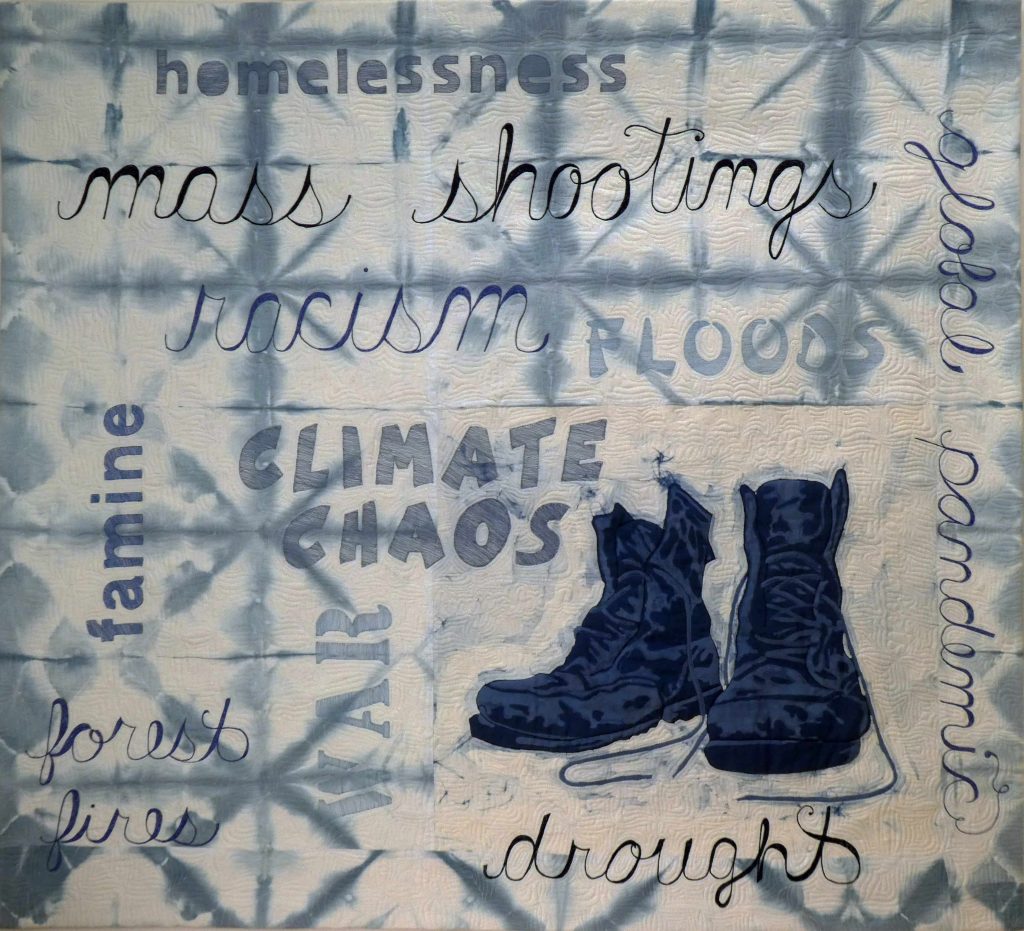 homelessness
mass shootings
racism
FLOODS
global pandemic
famine
CLIMATE
CHAOS
WAR
forest
fires
drought